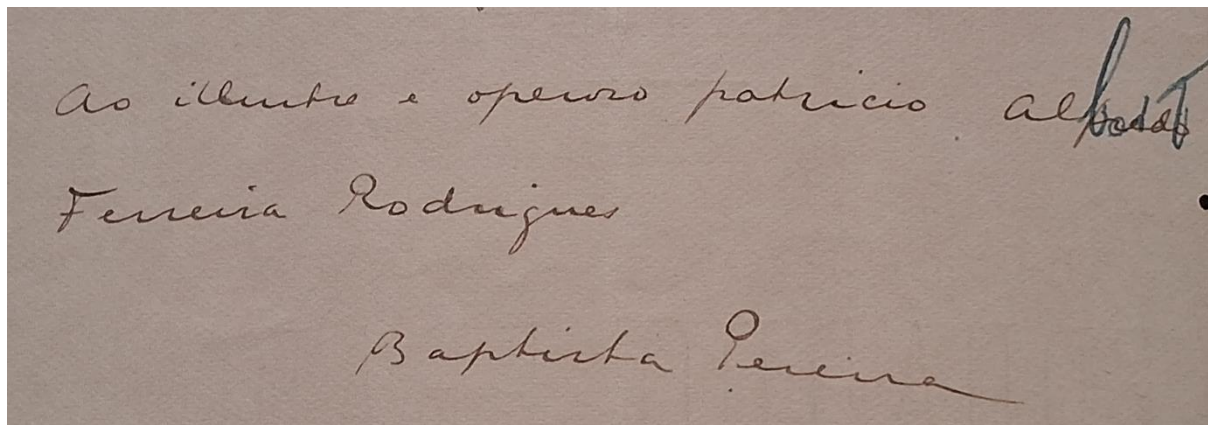 Ao illustre e operoso patricio
Ferreira Rodrigues
Baptista Pereira